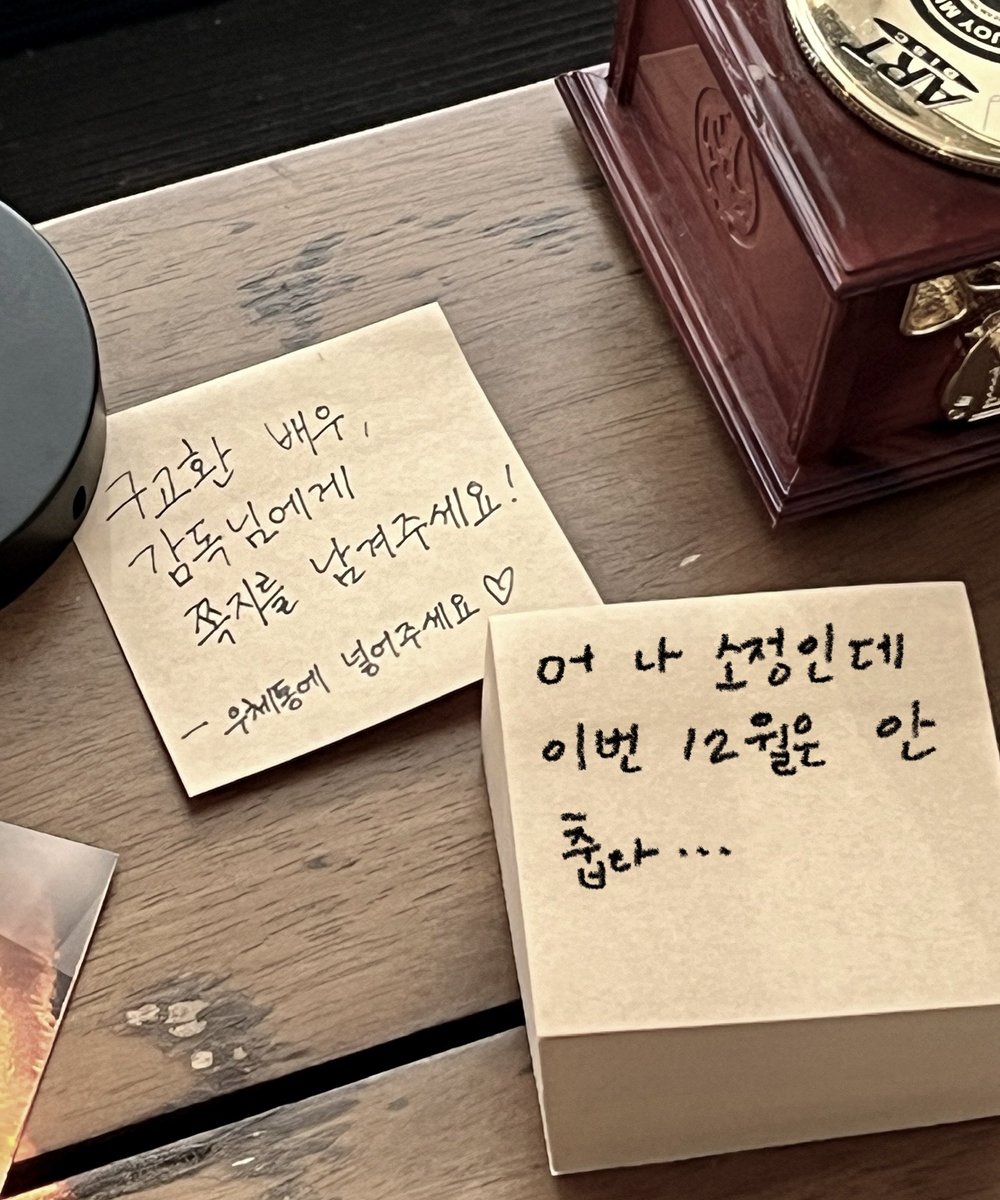 구교환 배우,
감독님에게
쪽지를 남겨주세요!
- 우체통에 넣어주세요♡
어 나 소정인데
이번 12월은 안
춥다...
ART
DISC